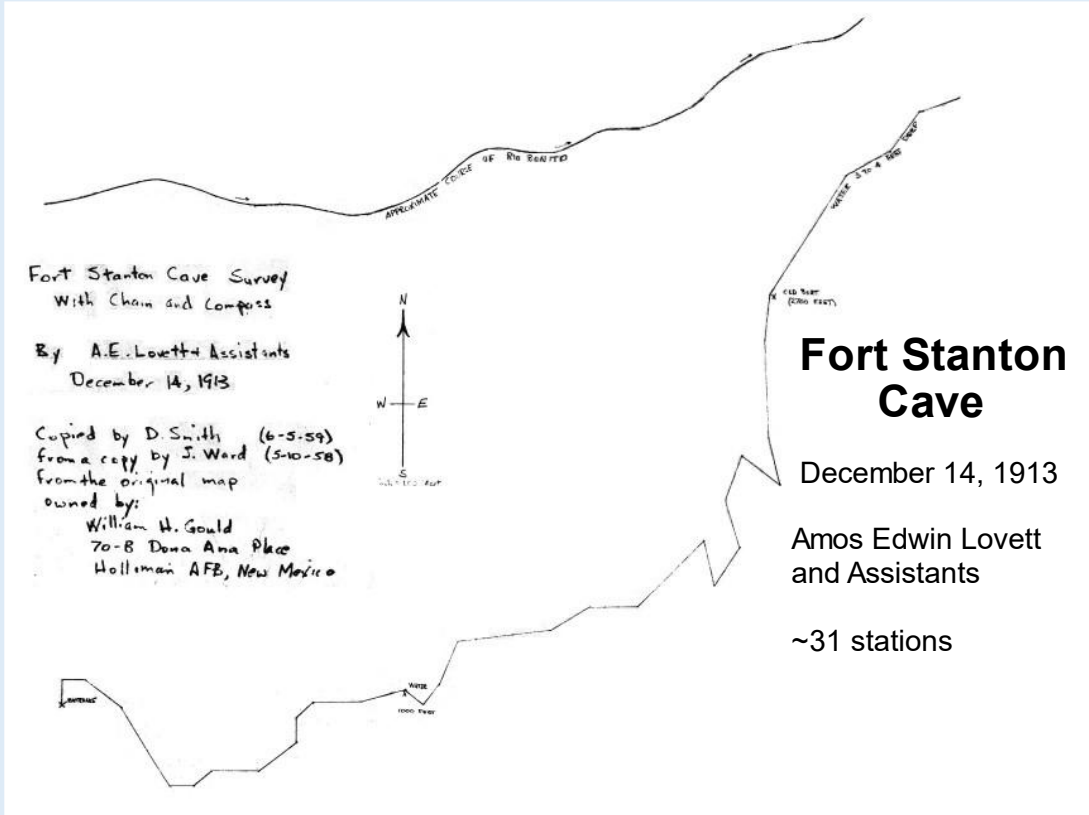 APPROXIMATE COURSE OF RIO BONITO
WATER 3 TO 4 FEET DEEP
OLD BOAT
(2700 FEET)
Fort Stanton Cave Survey
With Chain and Compass
By A.E. Lovett + Assistants
December 14, 1913
Copied by D. Smith (6-5-59)
from a copy by J. Ward (5-10-58)
from the original map
owned by:
William H. Gould
70-B Dona Ana Place
Holloman AFB, New Mexico
N
W E
S
Fort Stanton
Cave
December 14, 1913
Amos Edwin Lovett
and Assistants
~31 stations
ENTRANCE
WATER
1000 FEET